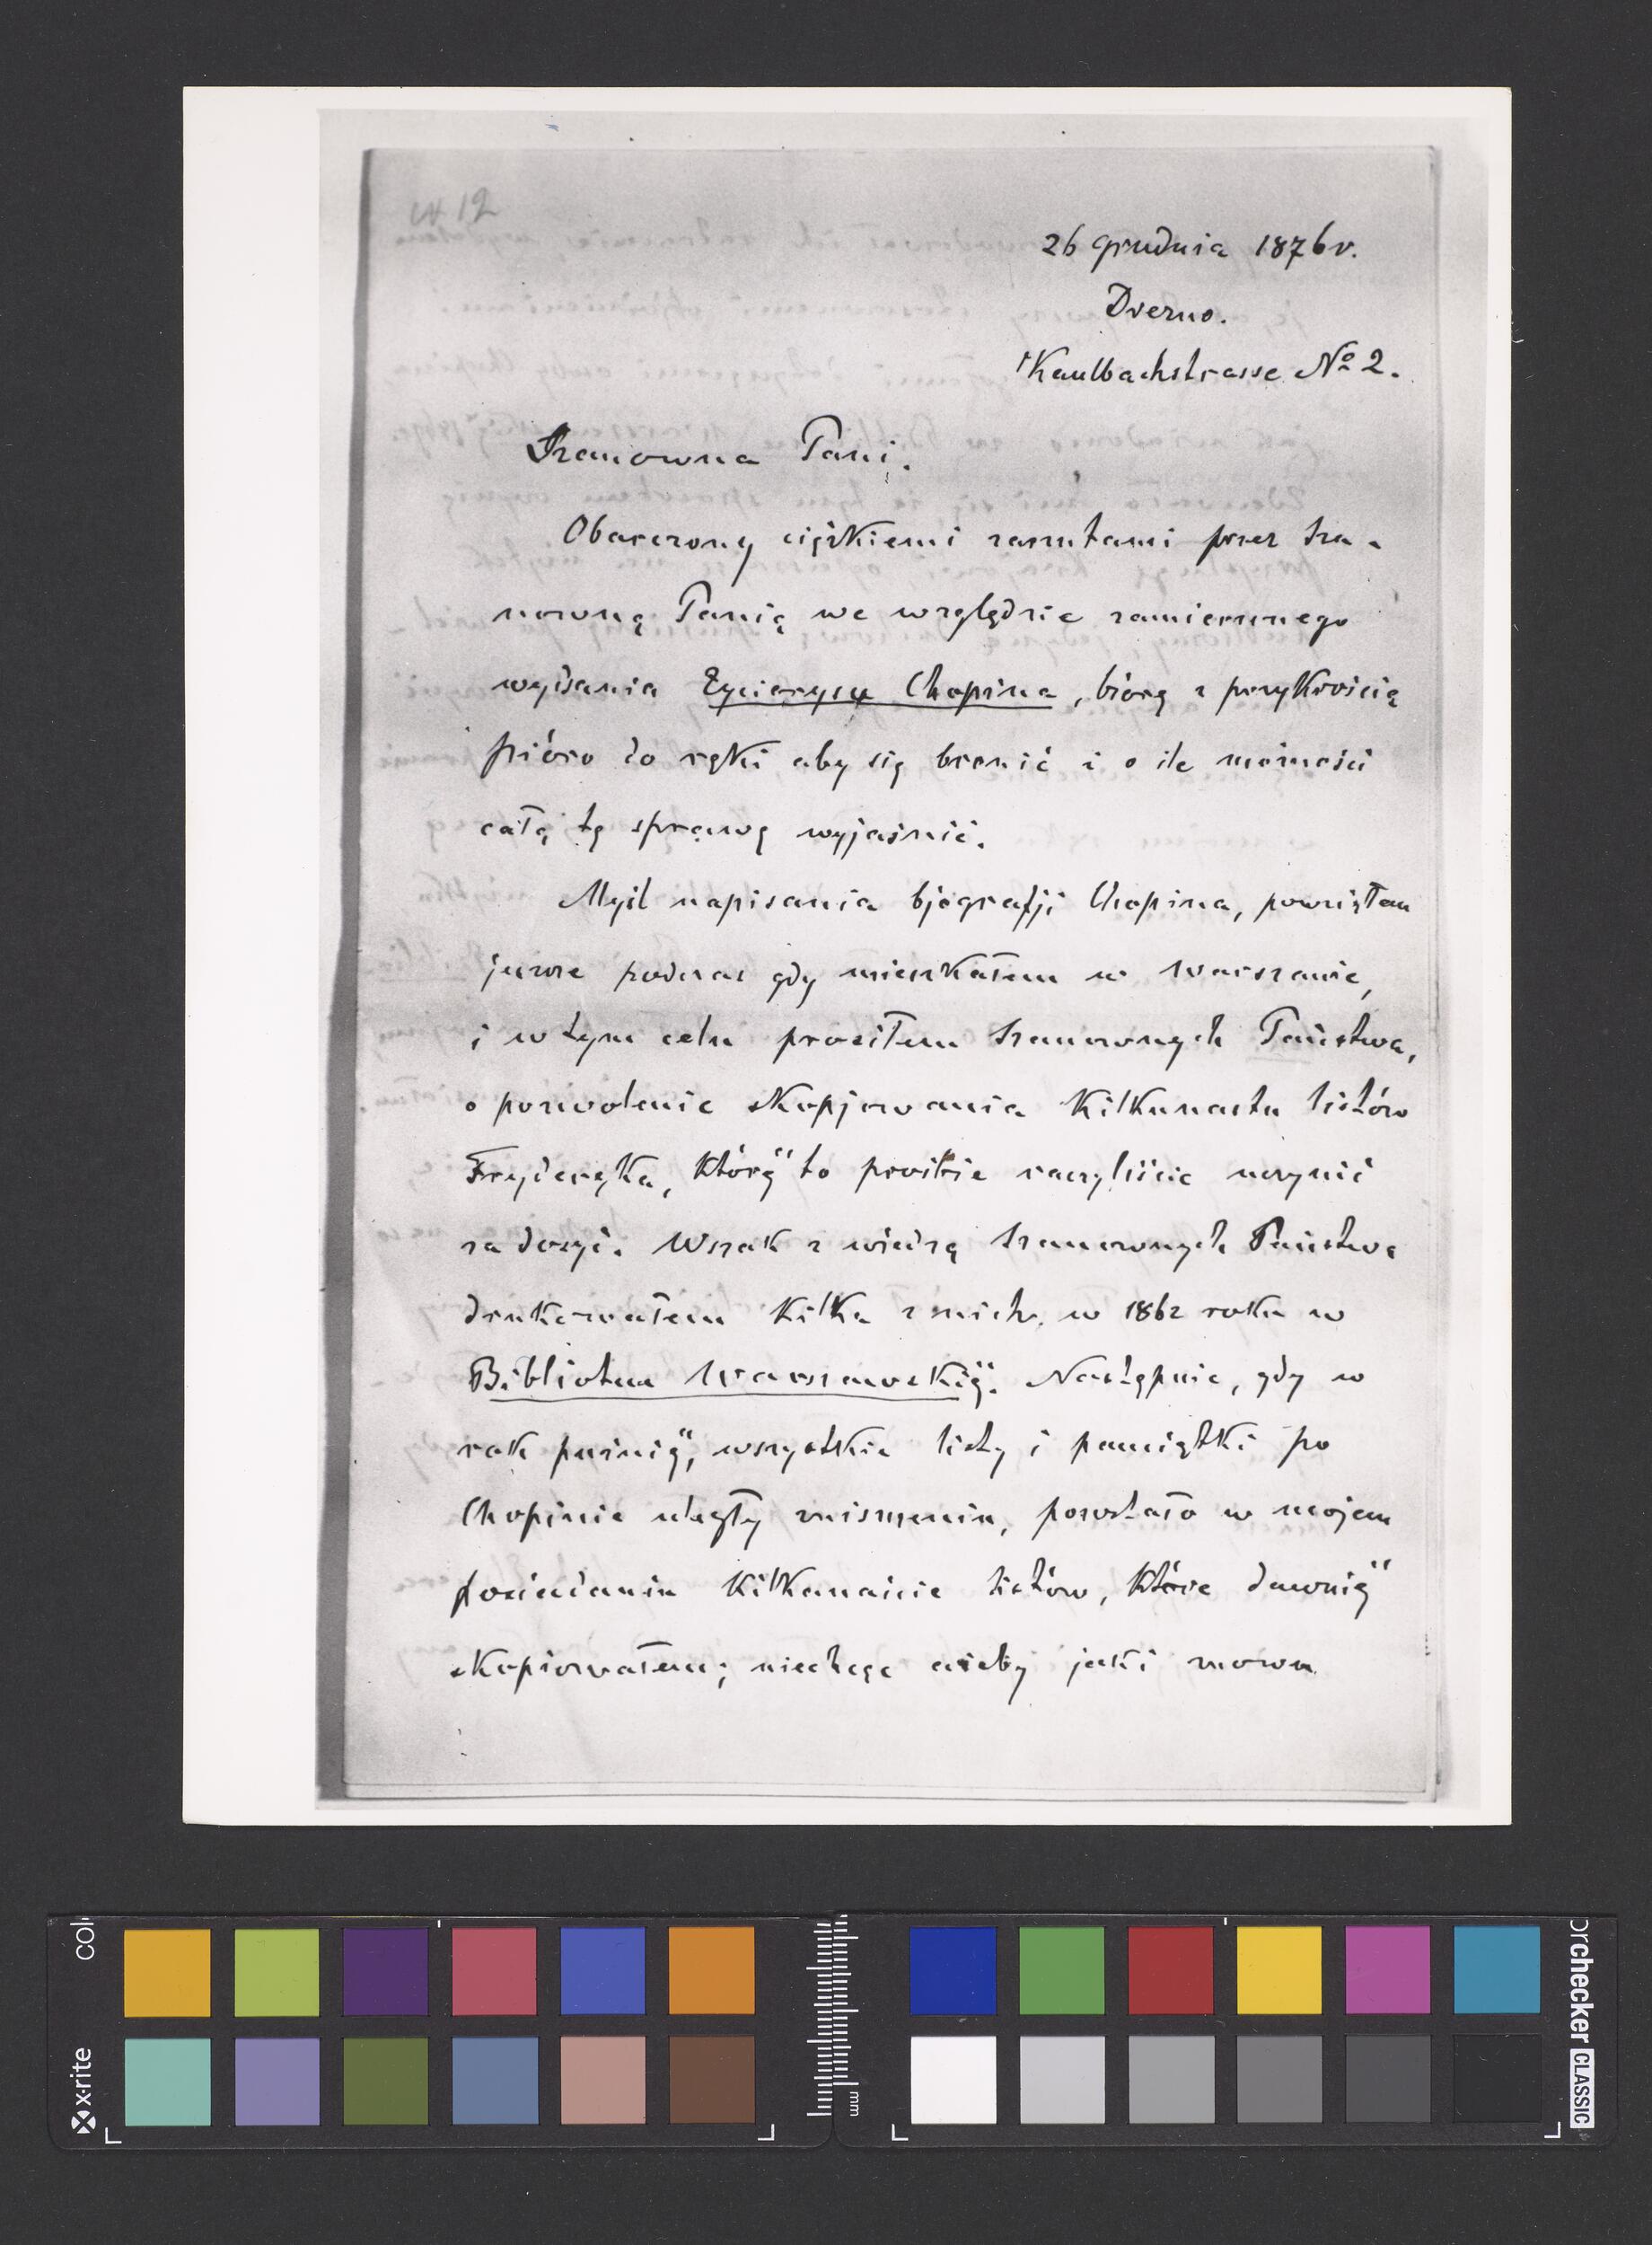 12
26 Grudnia 1876 r.
Drezno.
Kaulbachstrasse № 2.
Szanowna Pani.
Obarczony ciężkiemi zarzutami przez sza-
nowną Panią we względzie zamierzonego
wydania Życiorysu Chopina, biorę z przykrością
pióro do ręki aby się bronić i o ile możności
całą tę sprawę wyjaśnić.
Myśl napisania bjografji Chopina, powziąłem
jeszcze podczas gdy mieszkałem w Warszawie,
i w tym celu prosiłem Szanownych Państwa,
o pozwolenie skopjowania kilkunastu listów
Fryderyka, któréj to prośbie raczyliście uczynić
zadosyć. Wszak z wiedzą Szanownych Państwa
drukowałem kilka z nich, w 1862 roku w
Bibliotece Warszawskiéj. Następnie, gdy w
rok puźniéj, wszystkie listy i pamiątki po
Chopinie uległy zniszczeniu, pozostało w mojem
posiadaniu kilkanaście listów, które dawniéj
skopiowałem; niechcąc ażeby jaki znowu
x·rite
mm
colorchecker CLASSIC